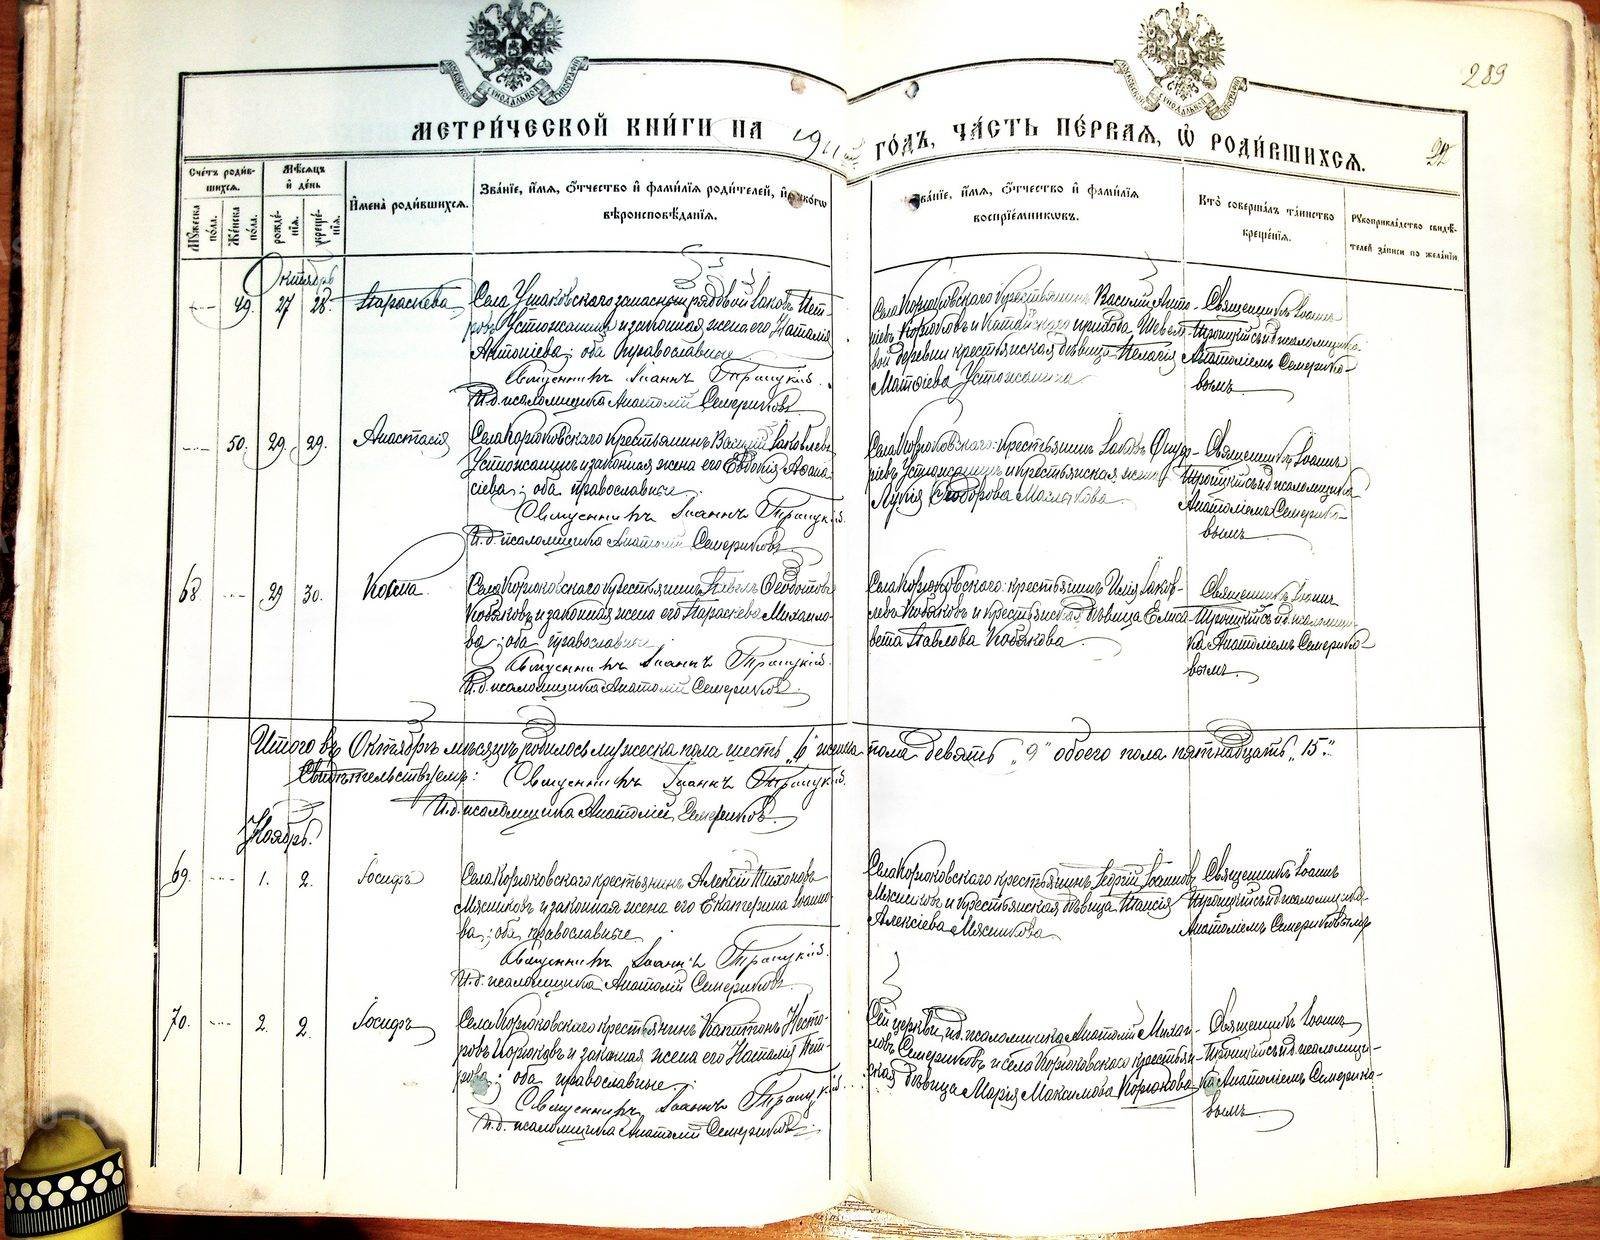 289
МОСКОВСКОЙ СѴНОДАЛЬНОЙ ТИПОГРАФІИ
МОСКОВСКОЙ СѴНОДАЛЬНОЙ ТИПОГРАФІИ
МЕТРИ́ЧЕСКОЙ КНИ́ГИ НА 1911 ГО́ДЪ, ЧА́СТЬ ПЕ́РВАЯ, Ѡ҆ РОДИ́ВШИХСЯ.
Сче́тъ роди́в-
шихся.
Мꙋ́жеска по́ла.
Же́нска по́ла.
Мѣ́сяцъ
и҆ де́нь
рожде́-
нїѧ.
креще́-
нїѧ.
И҆мена̀ роди́вшихсѧ.
Зва́нїе, и҆́мѧ, ѻ҆́тчество и҆ фами́лїѧ роди́телей, и҆ како́гѡ
вѣроисповѣ́данїѧ.
Зва́нїе, и҆́мѧ, ѻ҆́тчество и҆ фами́лїѧ
воспрїе́мникѡвъ.
Кто̀ соверша́лъ та́инство
креще́нїѧ.
Рꙋкоприкла́дство свидѣ́-
телей за́писи по жела́нїю
Октябрь
49. 27 28. Параскева
Села Ушаковскаго запасный рядовой Іаковъ Пет-
ровъ Устюжанинъ и законная жена его Наталія
Антоніева; оба православные
Священникъ Іоаннъ Троицкій.
И.д. псаломщика Анатолій Семериковъ
Села Корюковскаго крестьянинъ Василій Анто-
ніевъ Корюковъ и Катайскаго прихода
деревни крестьянская дѣвица Пелагія
Матѳіева Устюжанина
Священникъ Іоаннъ
Троицкій съ и.д. псаломщика
Анатоліемъ Семерико-
вымъ
50. 29 29. Анастасія
Села Корюковскаго крестьянинъ Василій Іаковлевъ
Устюжанинъ и законная жена его Евдокія Аѳана-
сіева; оба православные
Священникъ Іоаннъ Троицкій.
И.д. псаломщика Анатолій Семериковъ
Села Корюковскаго: крестьянинъ Іаковъ
Устюжанинъ и крестьянская жена
Лукія Ѳеодорова
Священникъ Іоаннъ
Троицкій съ и.д. псаломщика
Анатоліемъ Семерико-
вымъ
68. 29 30. Косма.
Села Корюковскаго крестьянинъ Павелъ Ѳеодотовъ
Кобяковъ и законная жена его Параскева Михаило-
ва; оба православные
Священникъ Іоаннъ Троицкій.
И.д. псаломщика Анатолій Семериковъ
Села Корюковскаго: крестьянинъ Илія Іаков-
левъ Кобяковъ и крестьянская дѣвица Елиса-
вета Павлова Кобякова
Священникъ Іоаннъ
Троицкій съ и.д. псаломщи-
ка Анатоліемъ Семерико-
вымъ.
Итого въ Октябрѣ мѣсяцѣ родилось мужеска пола шесть „6" женска пола девять „9" обоего пола пятнадцать „15."
Свидѣтельствуемъ: Священникъ Іоаннъ Троицкій.
И.д. псаломщика Анатолій Семериковъ.
Ноябрь.
69. 1. 2. Іосифъ
Села Корюковскаго крестьянинъ Алексій Тихоновъ
Мясниковъ и законная жена его Екатерина Іоанно-
ва; оба православные
Священникъ Іоаннъ Троицкій.
И.д. псаломщика Анатолій Семериковъ
Села Корюковскаго крестьянинъ Георгій Іоанновъ
Мясниковъ и крестьянская дѣвица Таисія
Алексіева Мясникова
Священникъ Іоаннъ
Троицкій съ и.д. псаломщика
Анатоліемъ Семериковымъ
70. 2. 2. Іосифъ
Села Корюковскаго крестьянинъ Капитонъ Несто-
ровъ Корюковъ и законная жена его Наталія Пет-
рова; оба православные.
Священникъ Іоаннъ Троицкій.
И.д. псаломщика Анатолій Семериковъ
Сей церкви и.д. псаломщика Анатолій Михаи-
ловъ Семериковъ и села Корюковскаго крестьян-
ская дѣвица Марія Максимова Корюкова
Священникъ Іоаннъ
Троицкій съ и.д. псаломщи-
ка Анатоліемъ Семерико-
вымъ